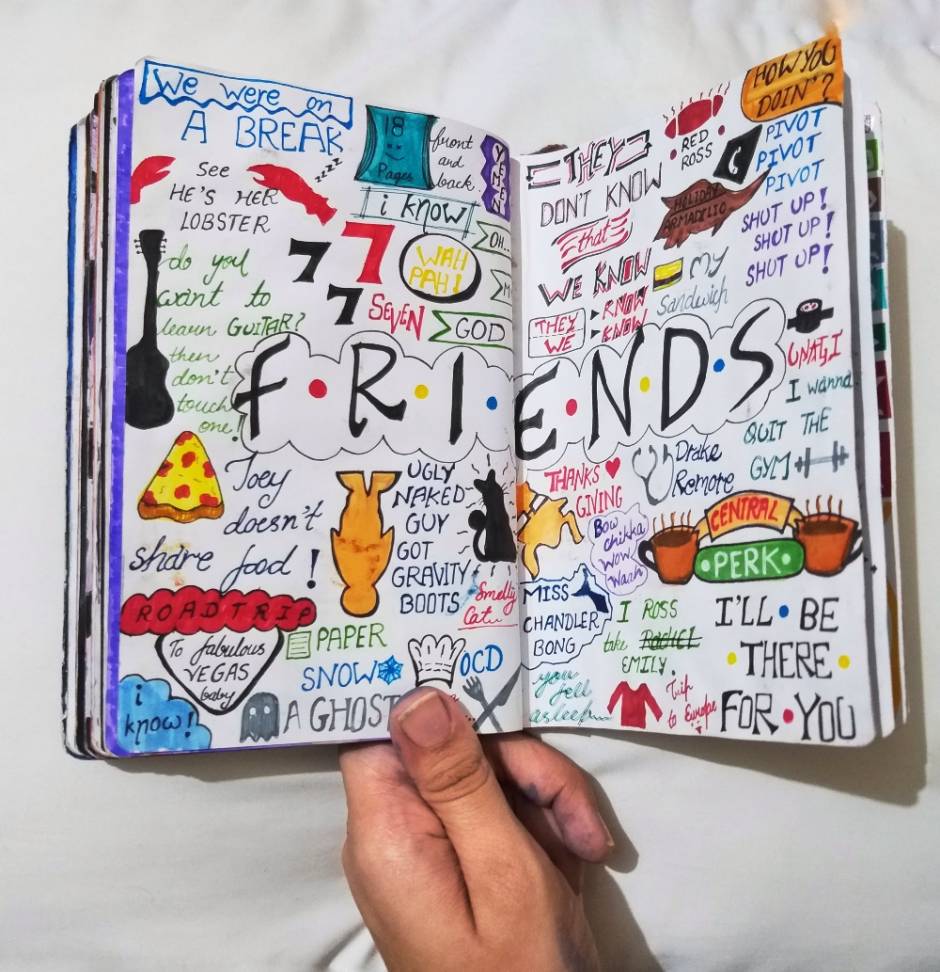 We were on
A BREAK
See
HE'S HER
LOBSTER
zzz
18
Pages
front
and
back.
YEMEN
i know
7 7
7 SEVEN
WAH
PAH!
OH..
M
GOD
do you
want to
learn GUITAR?
then
don't
touch
one!
F.R.I.E.N.D.S
Joey
doesn't
share food!
UGLY
NAKED
GUY
GOT
GRAVITY
BOOTS
Smelly
Cat
ROAD TRIP
To fabulous
VEGAS
baby
i
know!
PAPER
SNOW
A GHOST
OCD
THEY
DON'T KNOW
that
WE KNOW
THEY KNOW
WE KNOW
RED
ROSS
HOW YOU
DOIN'?
HOLIDAY
ARMADILLO
PIVOT
PIVOT
PIVOT
SHUT UP!
SHUT UP!
SHUT UP!
MY
Sandwich
UNAGI
I wanna
QUIT THE
GYM
THANKS
GIVING
Drake
Remore
Bow
chikka
Wow
Waah
CENTRAL
PERK
MISS
CHANDLER
BONG
I ROSS
take Rachel
EMILY.
you
fell
asleep....
Trip
to Europe
I'LL BE
THERE
FOR YOU